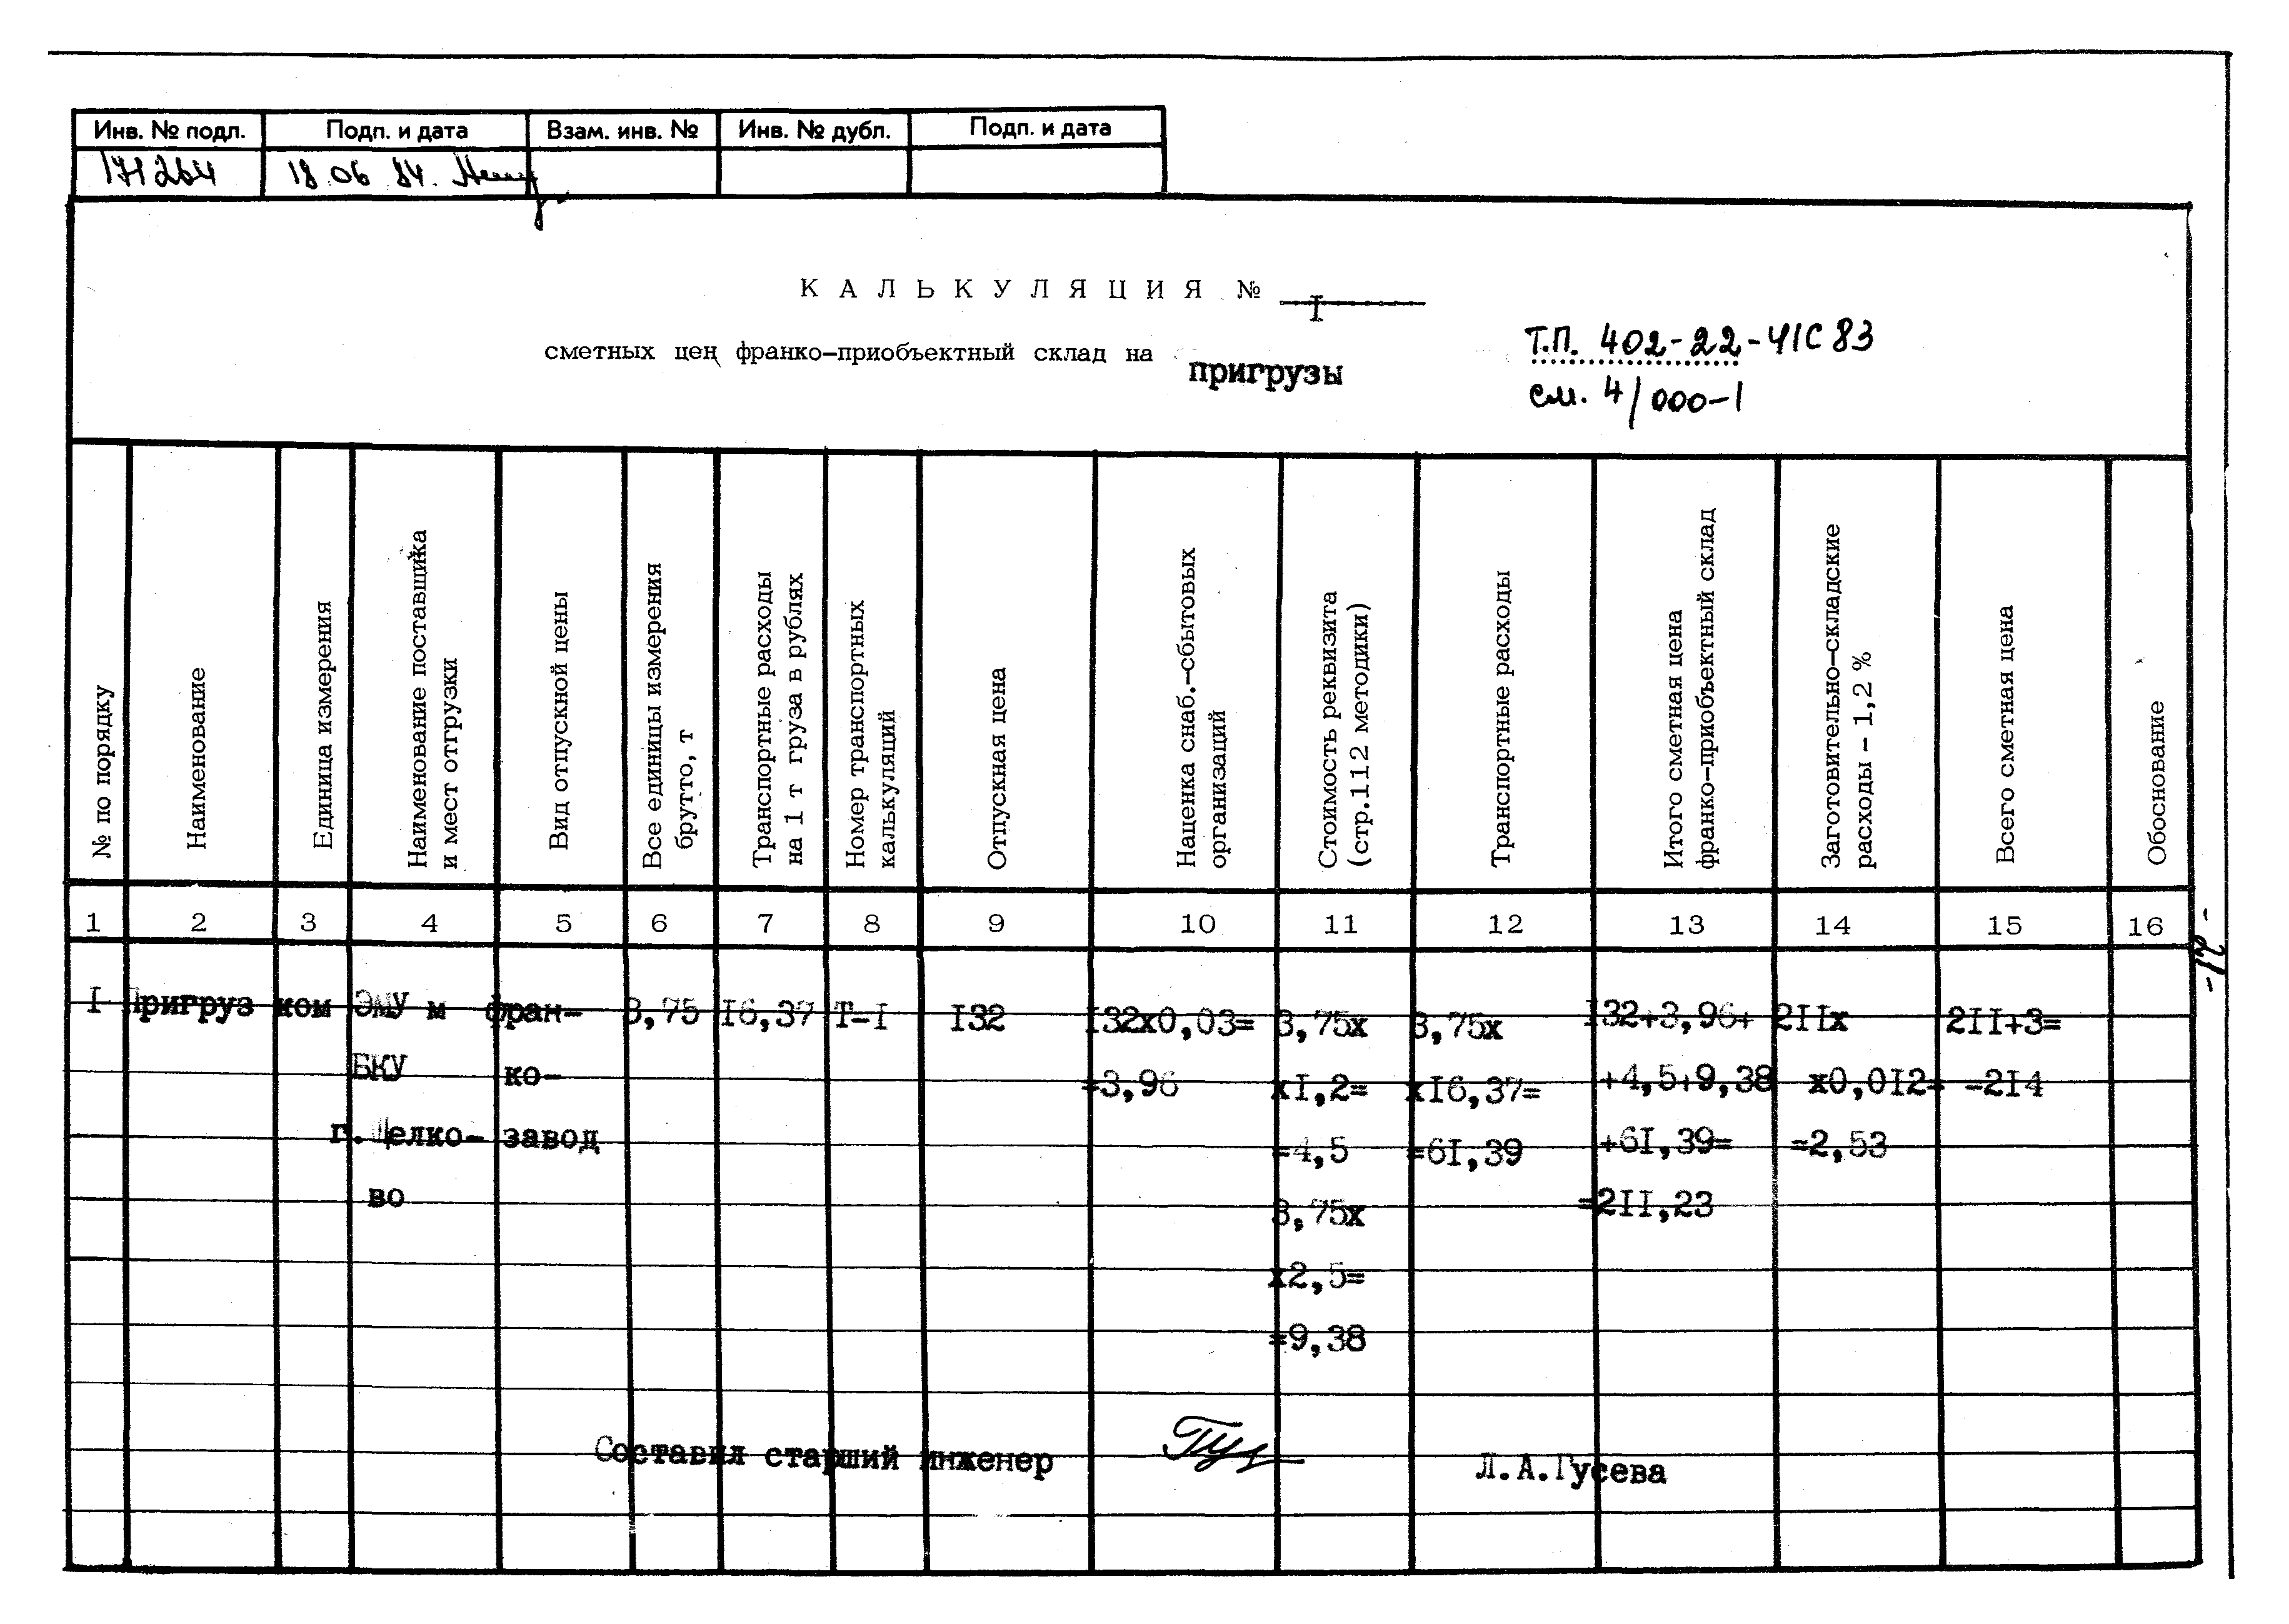 Инв. № подл. Подп. и дата Взам. инв. № Инв. № дубл. Подп. и дата
171264 18 06 84.
КАЛЬКУЛЯЦИЯ № I
сметных цен франко-приобъектный склад на пригрузы
Т.П. 402-22-41С83
см. 4/000-1
№ по порядку
Наименование
Единица измерения
Наименование поставщика
и мест отгрузки
Вид отпускной цены
Все единицы измерения
брутто, т
Транспортные расходы
на 1 т груза в рублях
Номер транспортных
калькуляций
Отпускная цена
Наценка снаб.-сбытовых
организаций
Стоимость реквизита
(стр.112 методики)
Транспортные расходы
Итого сметная цена
франко-приобъектный склад
Заготовительно-складские
расходы - 1,2 %
Всего сметная цена
Обоснование
1 2 3 4 5 6 7 8 9 10 11 12 13 14 15 16
I Пригруз ком ЭМУ м фран- 3,75 16,37 Т-I I32 I32х0,03= 3,75х 3,75х I32+3,96+ 2IIх 2II+3=
БКУ ко- =3,96 хI,2= хI6,37= +4,5+9,38 х0,0I2= =2I4
г.Щелко- завод =4,5 =6I,39 +6I,39= =2,53
во 3,75х =2II,23
х2,5=
=9,38
Составил старший инженер Л.А.Гусева
-12-